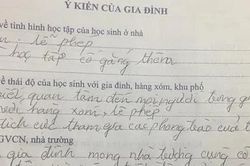 Ý KIẾN CỦA GIA ĐÌNH
về tình hình học tập của học sinh ở nhà
: lễ phép
học tập cố gắng thêm
về thái độ của học sinh với gia đình, hàng xóm, khu phố
quan tâm đến mọi người trong
hàng xóm, lễ phép
tích cực tham gia các phong trào
GVCN, nhà trường
gia đình mong nhà trường